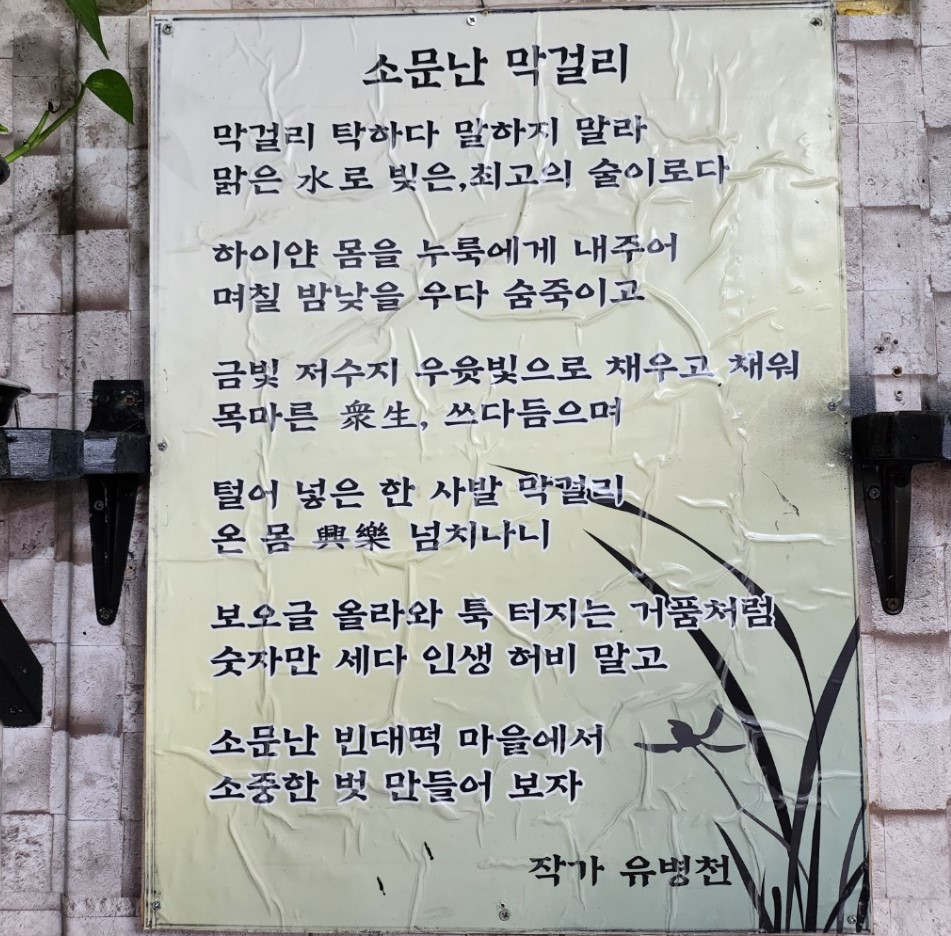 소문난 막걸리
막걸리 탁하다 말하지 말라
맑은 水로 빚은,최고의 술이로다
하이얀 몸을 누룩에게 내주어
며칠 밤낮을 우다 숨죽이고
금빛 저수지 우윳빛으로 채우고 채워
목마른 衆生, 쓰다듬으며
털어 넣은 한 사발 막걸리
온 몸 興樂 넘치나니
보오글 올라와 툭 터지는 거품처럼
숫자만 세다 인생 허비 말고
소문난 빈대떡 마을에서
소중한 벗 만들어 보자
작가 유병천